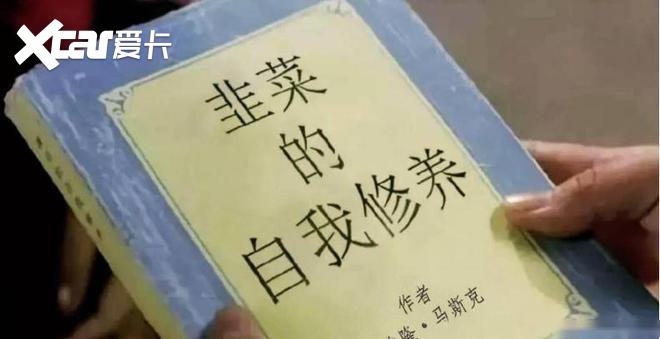 Xcar爱卡
韭菜
的
自我修养
作者
隆·马斯克